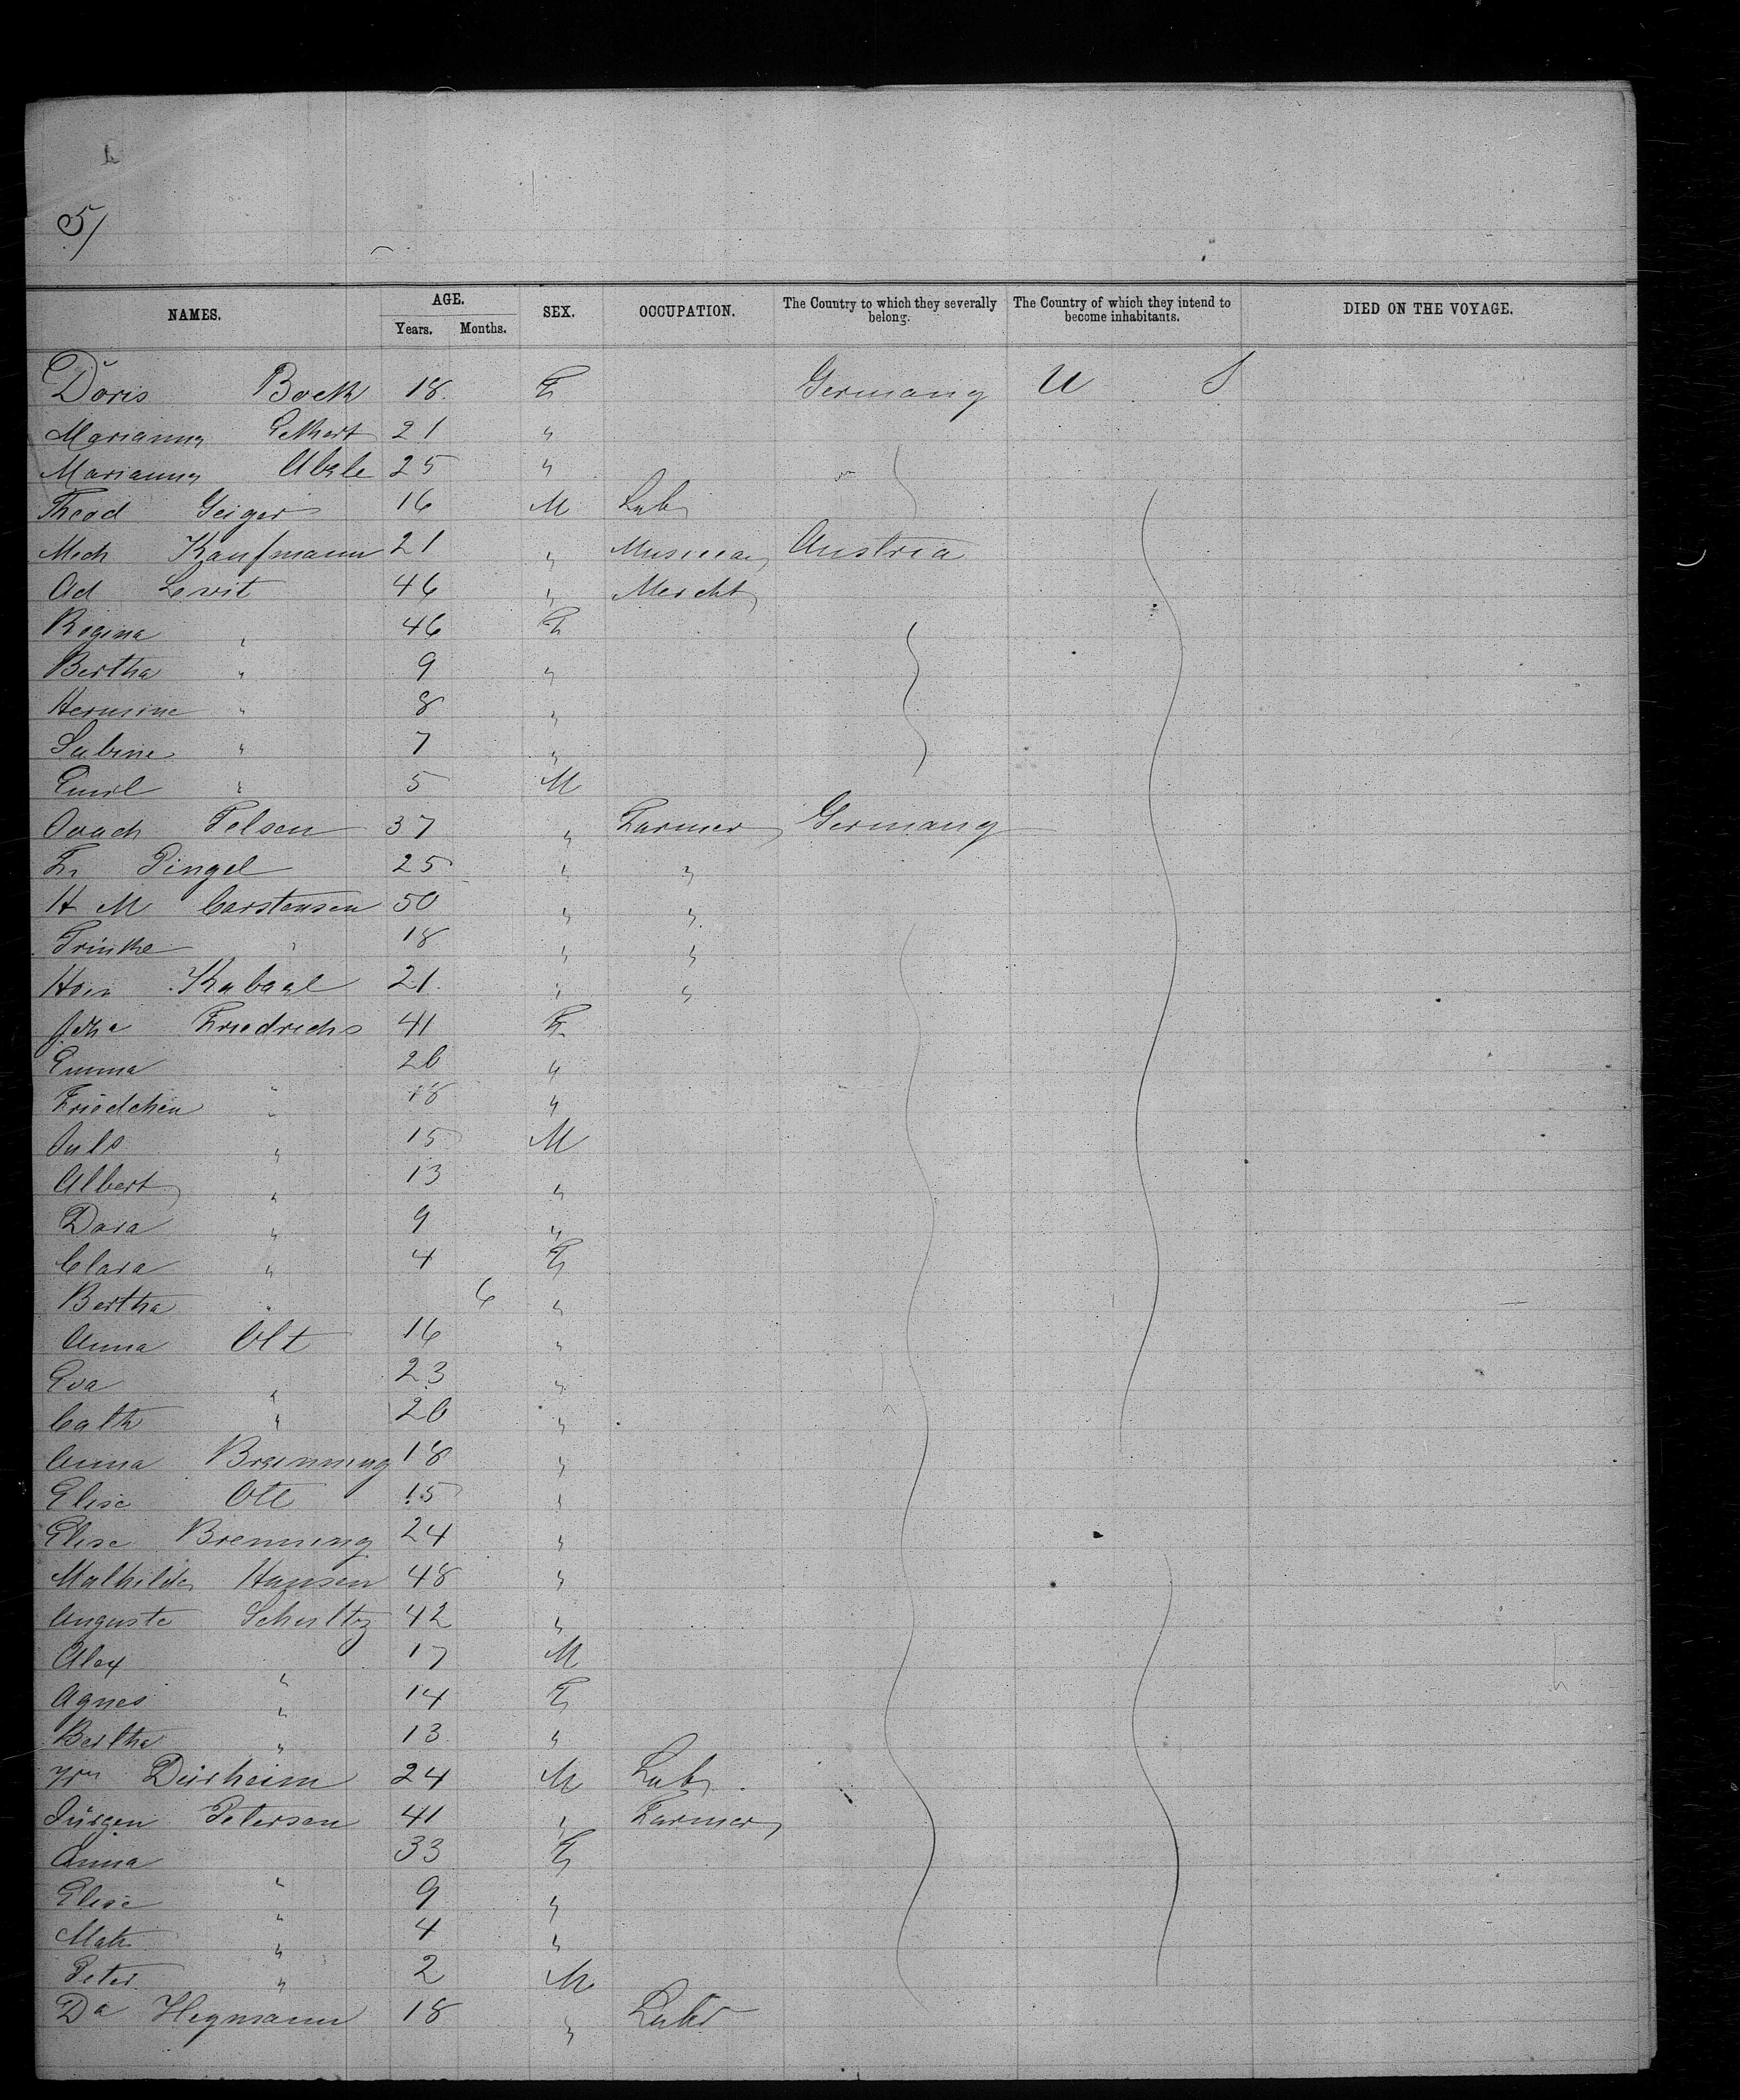 5/
NAMES. AGE. Years. Months. SEX. OCCUPATION. The Country to which they severally belong. The Country of which they intend to become inhabitants. DIED ON THE VOYAGE.
Doris Bock 18 F Germany U S
Marianna Eckhert 21 "
Marianna Abele 25 "
Theod Geiger 16 M Lab
Mich Kaufmann 21 " Musician Austria
Ad Lewit 46 " Mercht
Regina " 46 F
Bertha " 9 "
Hermine " 8 "
Sabine " 7 "
Emil " 5 M
Joach Telsen 37 " Farmer Germany
Fr Pingel 25 " "
H M Carstensen 50 " "
Trinke " 18 " "
Hein 21 " "
Friedrichs 41 F
Emma " 20 "
Friedchen " 18 "
Juls " 15 M
Albert " 13 "
Dora " 9 "
Clara " 4 F
Bertha " 6 "
Anna Ott 16 "
Eva " 23 "
Cath " 20 "
Anna Brenning 18 "
Elise Ott 15 "
Elise Brenning 24 "
Mathilde Hansen 48 "
Auguste Schultz 42 "
Alex " 17 M
Agnes " 14 F
Bertha " 13 "
Wm Dürheim 24 M Lab
Jürgen Petersen 41 " Farmer
Anna " 33 F
Elise " 9 "
Math " 4 "
Peter " 2 M
Da Hegmann 18 " Labr